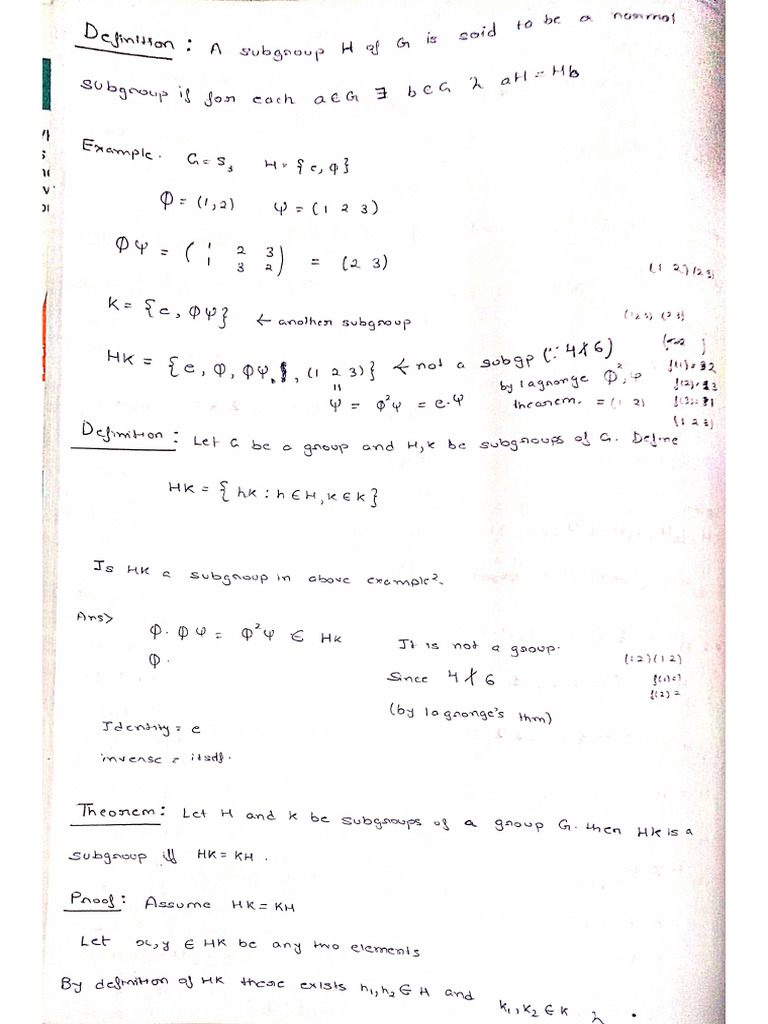 Definition : A subgroup H of G is said to be a normal
subgroup if for each a∈G ∃ b∈G ∋ aH = Hb
Example. G = S₃ H = {e, φ}
φ = (1,2) ψ = (1 2 3)
φψ = (1 2 3 / 1 3 2) = (2 3)
(1 2)(2 3)
K = {e, φψ} ← another subgroup
(1 2 3) (2 3)
HK = {e, φ, φψ, (1 2 3)} ← not a subgp (∵ 4∤6)
f(1) = 2
"
by lagrange φ², ψ
ψ = φ²ψ = e.ψ
theorem. = (1 2)
(1 2 3)
Definition : Let G be a group and H, K be subgroups of G. Define
HK = {hk : h ∈ H, k ∈ K}
Is HK a subgroup in above example?
Ans>
φ. φψ = φ²ψ ∈ HK
φ.
It is not a group.
Since 4 ∤ 6
(by lagrange's thm)
(1 2)(1 2)
f(2) =
Identity = e
inverse = itself.
Theorem : Let H and K be subgroups of a group G. then HK is a
subgroup iff HK = KH .
Proof : Assume HK = KH
Let x, y ∈ HK be any two elements
By definition of HK there exists h₁, h₂ ∈ H and k₁, k₂ ∈ K ∋